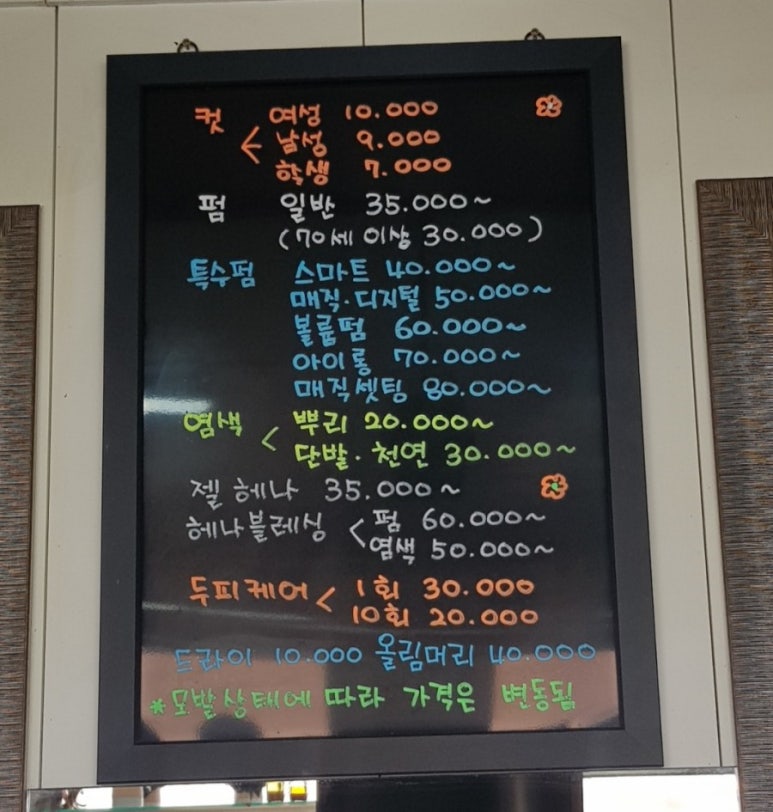 컷 < 여성 10.000
남성 9.000
학생 7.000
펌 일반 35.000~
(70세 이상 30.000)
특수펌 스마트 40.000~
매직·디지털 50.000~
볼륨펌 60.000~
아이롱 70.000~
매직셋팅 80.000~
염색 < 뿌리 20.000~
단발·천연 30.000~
젤 헤나 35.000~
헤나블레싱 < 펌 60.000~
염색 50.000~
두피케어 < 1회 30.000
10회 20.000
드라이 10.000 올림머리 40.000
*모발상태에 따라 가격은 변동됨